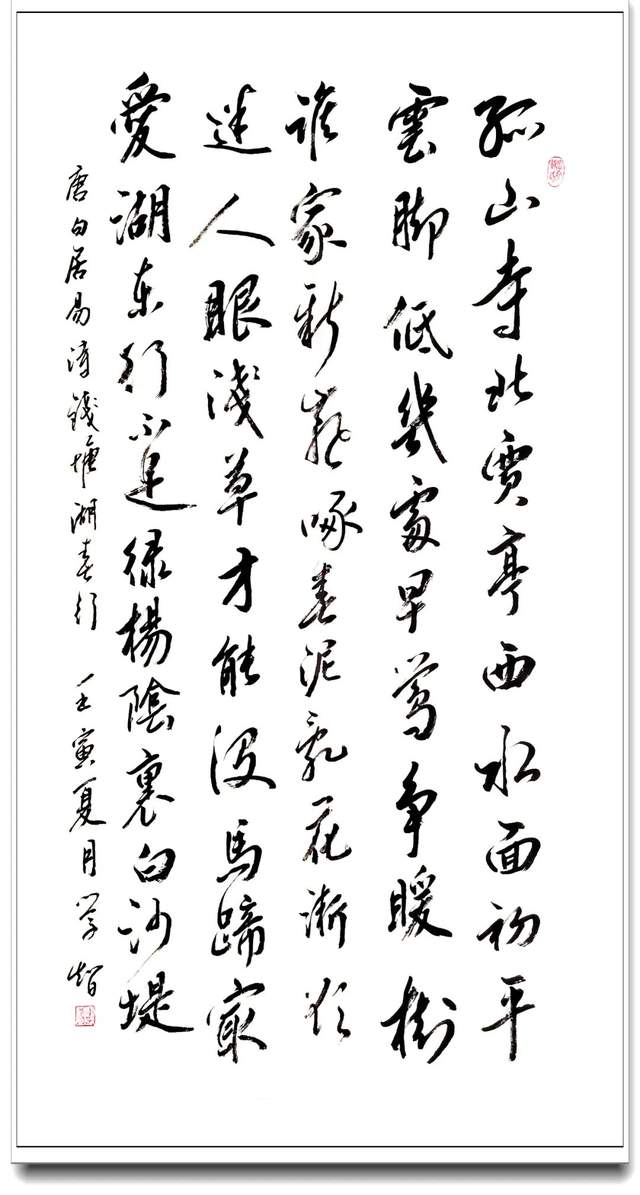 孤山寺北賈亭西水面初平
雲脚低幾處早鶯争暖樹
誰家新燕啄春泥亂花漸欲
迷人眼淺草才能没馬蹄最
愛湖東行不足緑楊陰裏白沙堤
唐白居易詩錢塘湖春行 壬寅夏月學智